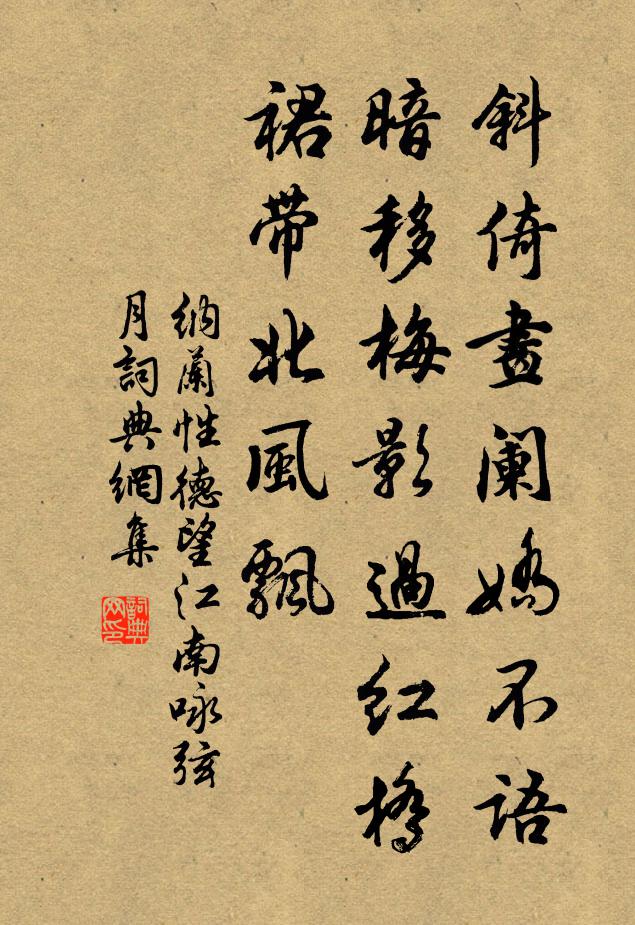 斜倚畫闌嬌不語
暗移梅影過紅橋
裙帶北風飄
納蘭性德望江南咏弦
月詞典網集
詞典
网印